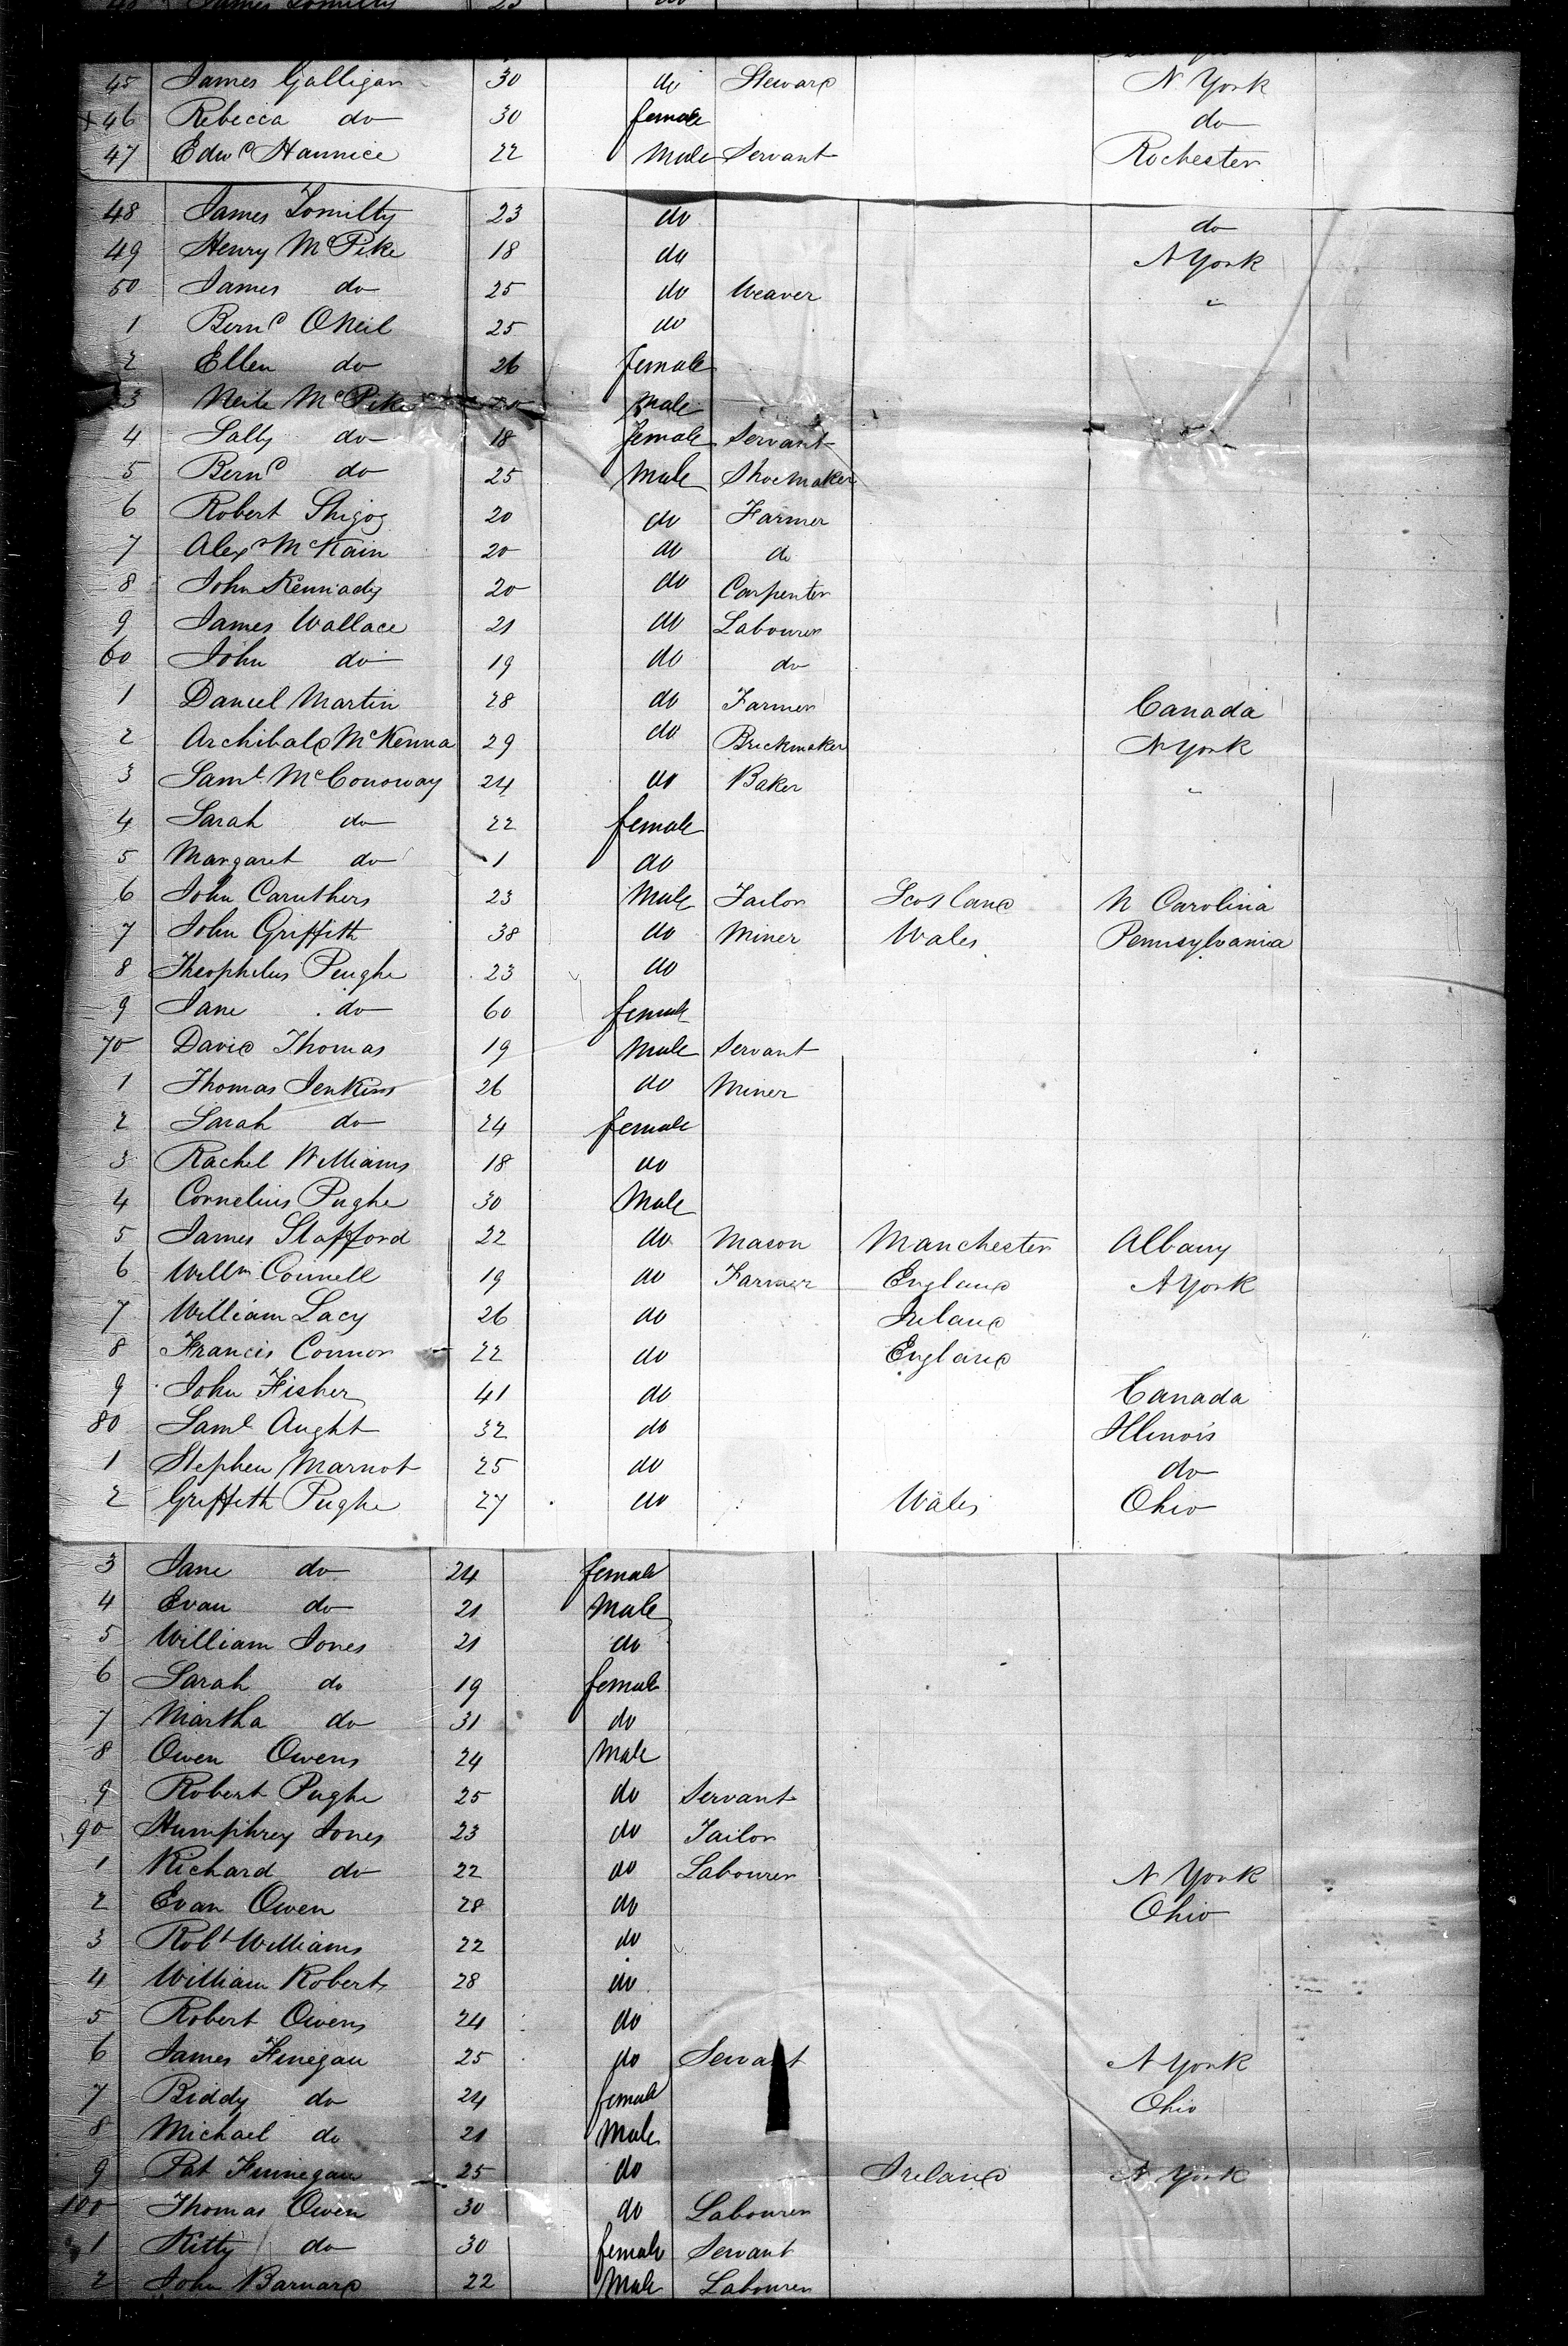 45 James Galligan 30 do Steward N York
46 Rebecca do 30 female do
47 Edwd Hannice 22 Male Servant Rochester
48 James Tomilty 23 do do
49 Henry McPike 18 do N York
50 James do 25 do Weaver "
1 Bernd ONeil 25 do
2 Ellen do 26 female
3 Neile McPike 20 Male
4 Sally do 18 female Servant
5 Bernd do 25 Male Shoemaker
6 Robert Shigog 20 do Farmer
7 Alexr McKain 20 do do
8 John Kennady 20 do Carpenter
9 James Wallace 21 do Labourer
60 John do 19 do do
1 Daniel Martin 28 do Farmer Canada
2 Archibald McKenna 29 do Brickmaker N York
3 Saml McConoway 24 do Baker "
4 Sarah do 22 female
5 Margaret do 1 do
6 John Caruthers 23 Male Tailor Scotland N Carolina
7 John Griffith 38 do Miner Wales Pennsylvania
8 Theophelus Peughe 23 do
9 Jane do 60 female
70 David Thomas 19 Male Servant
1 Thomas Jenkins 26 do Miner
2 Sarah do 24 female
3 Rachel Williams 18 do
4 Cornelius Pughe 30 Male
5 James Stafford 22 do Mason Manchester Albany
6 Willm Connell 19 do Farmer England N York
7 William Lacy 26 do Ireland
8 Francis Connor 22 do England
9 John Fisher 41 do Canada
80 Saml Aught 32 do Illinois
1 Stephen Marnot 25 do do
2 Griffith Pughe 27 do Wales Ohio
3 Jane do 24 female
4 Evan do 21 Male
5 William Jones 21 do
6 Sarah do 19 female
7 Martha do 31 do
8 Owen Owens 24 Male
9 Robert Pughe 25 do Servant
90 Humphrey Jones 23 do Tailor
1 Richard do 22 do Labourer N York
2 Evan Owen 28 do Ohio
3 Robt Williams 22 do
4 William Roberts 28 do
5 Robert Owens 24 do
6 James Finegan 25 do Servant N York
7 Biddy do 24 female Ohio
8 Michael do 21 Male
9 Pat Finnegan 25 do Ireland N York
100 Thomas Owen 30 do Labourer
1 Kitty do 30 female Servant
2 John Barnard 22 Male Labourer